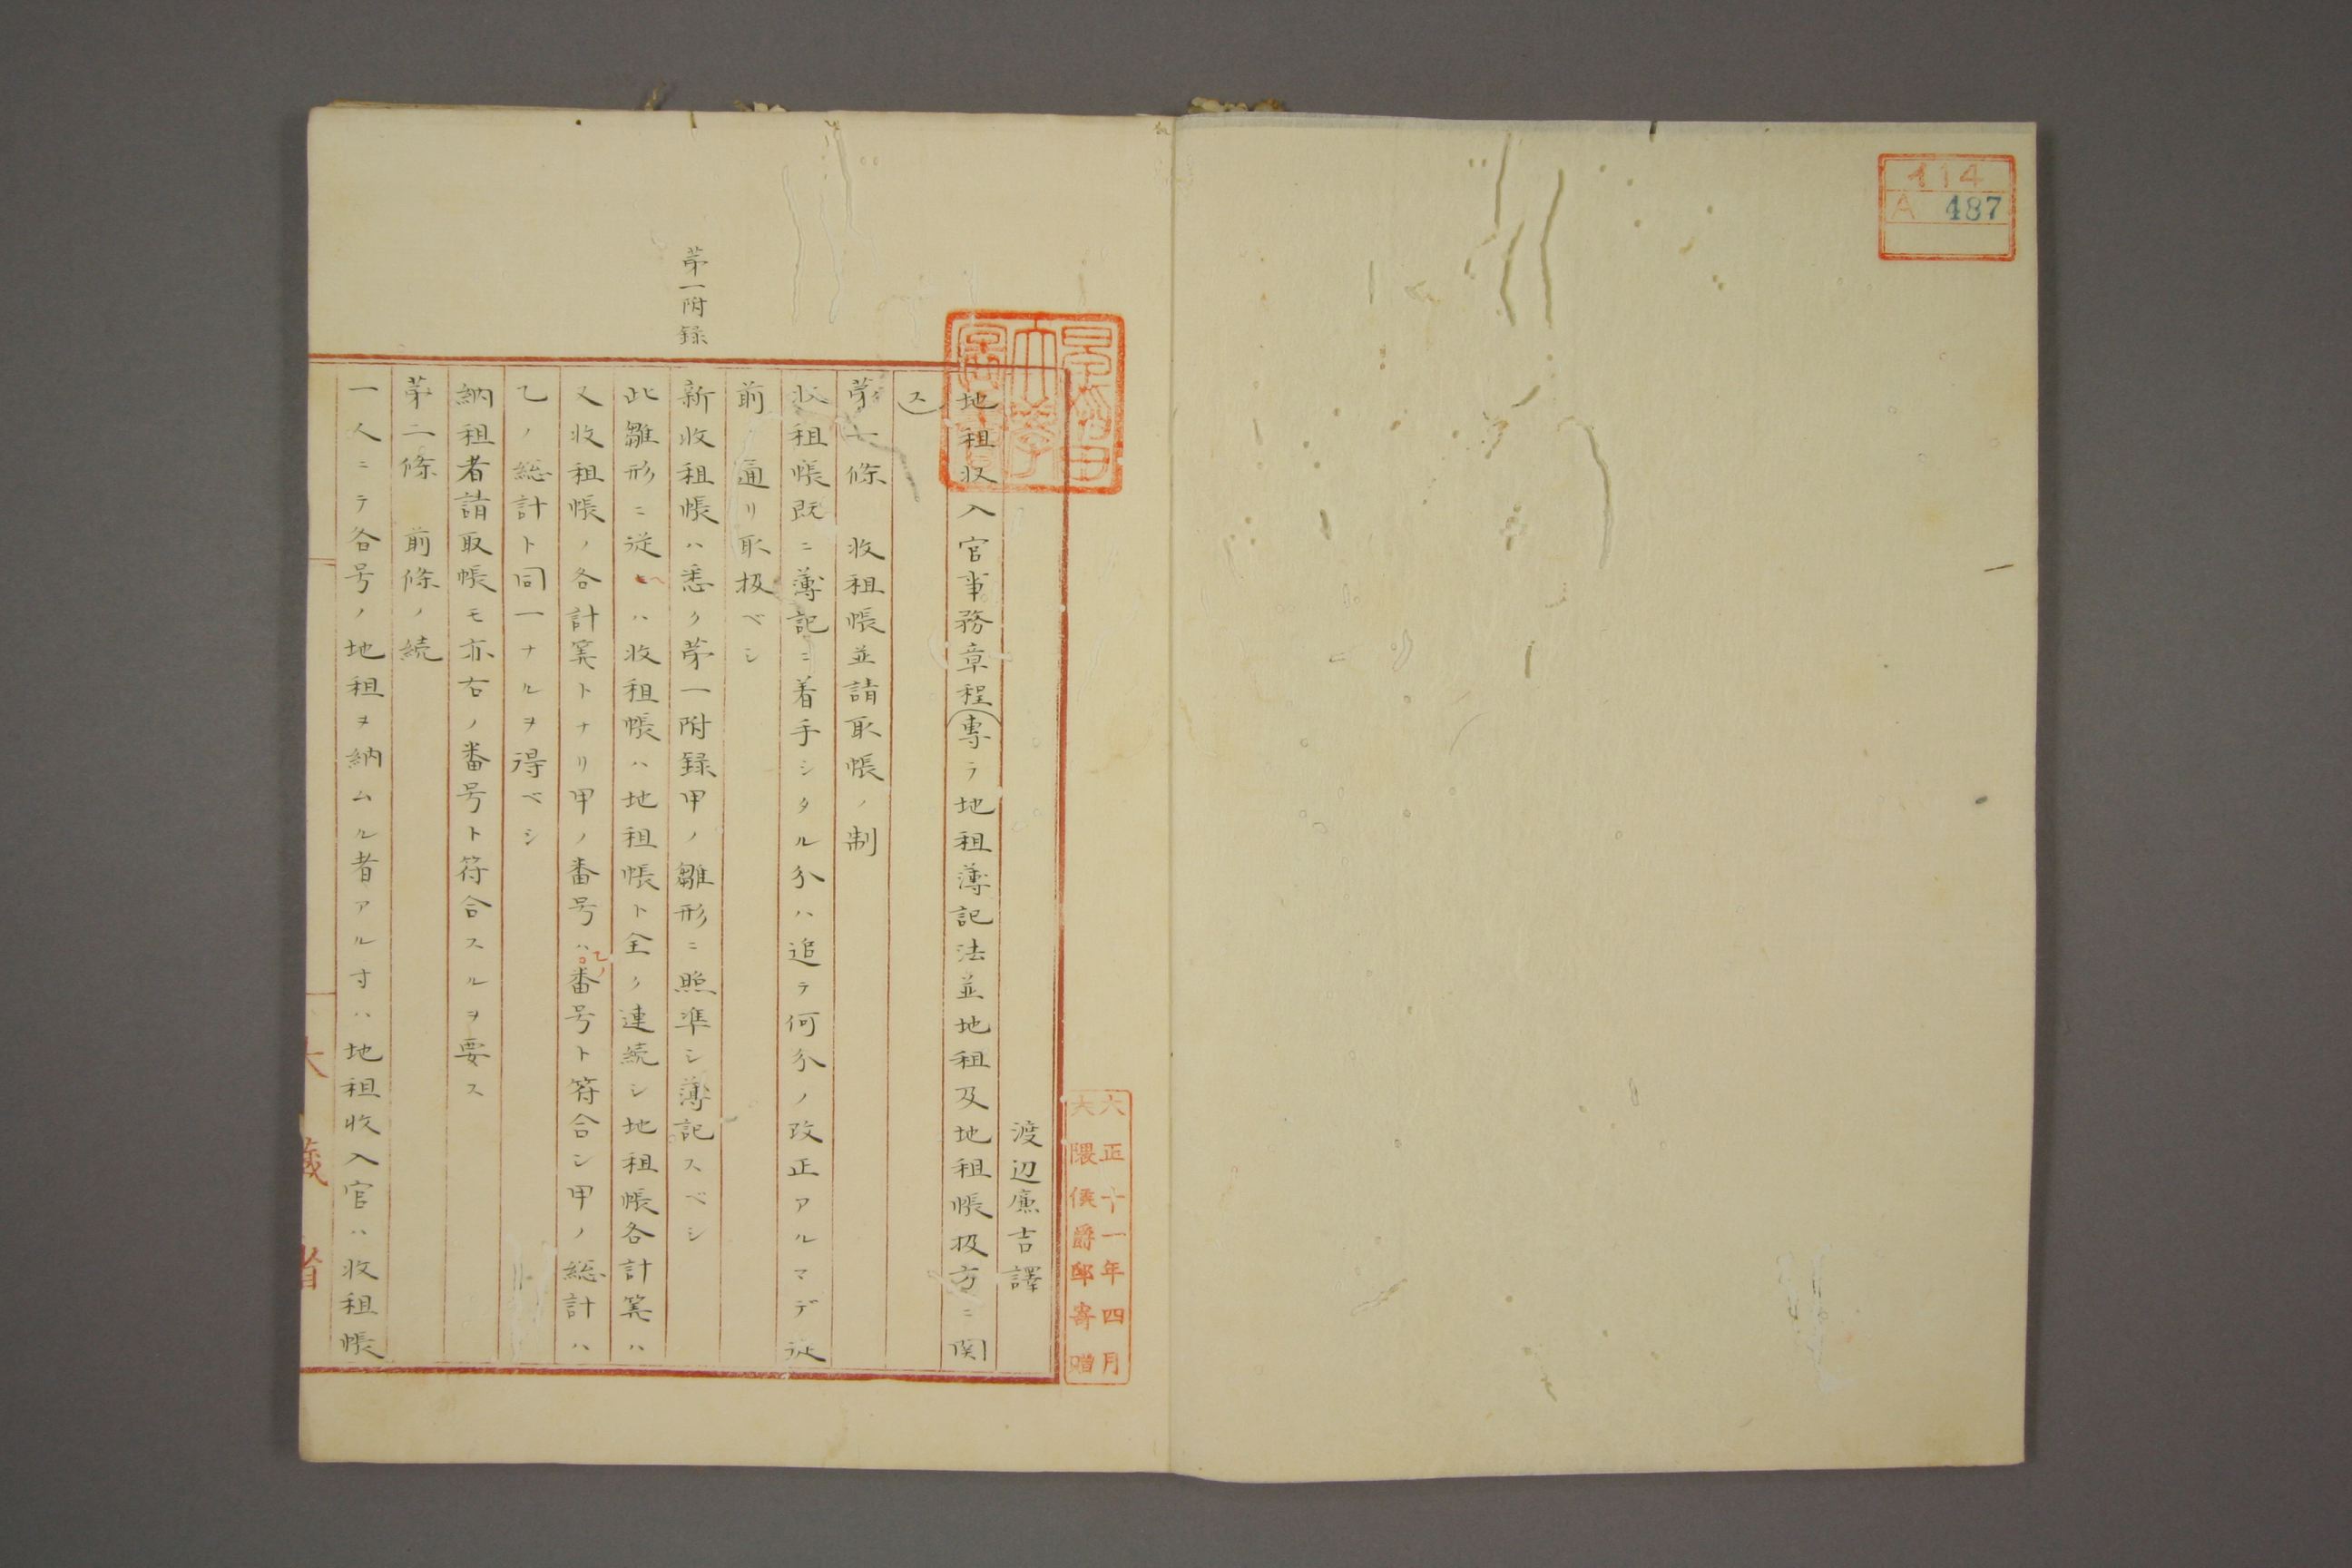 114
A 487
六正十一年四月
大隈侯爵邸寄贈
渡辺廉吉譯
地租收入官事務章程(專ラ地租薄記法並地租及地租帳扱方ニ関
ス)
苐一條 收租帳並請取帳ノ制
收租帳既ニ薄記ニ着手シタル分ハ追テ何分ノ改正アルマデ従
前ノ通リ取扱ベシ
苐一附録
新收租帳ハ悉ク苐一附録甲ノ雛形ニ照準シ薄記スベシ
此雛形ニ従ヘハ收租帳ハ地租帳ト全ク連続シ地租帳各計筭ハ
又收租帳ノ各計筭トナリ甲ノ番号ハ乙ノ番号ト符合シ甲ノ総計ハ
乙ノ総計ト同一ナルヲ得ベシ
納租者請取帳モ亦右ノ番号ト符合スルヲ要ス
苐二條 前條ノ続
一人ニテ各号ノ地租ヲ納ムル者アル寸ハ地租收入官ハ收租帳
大 藏 省